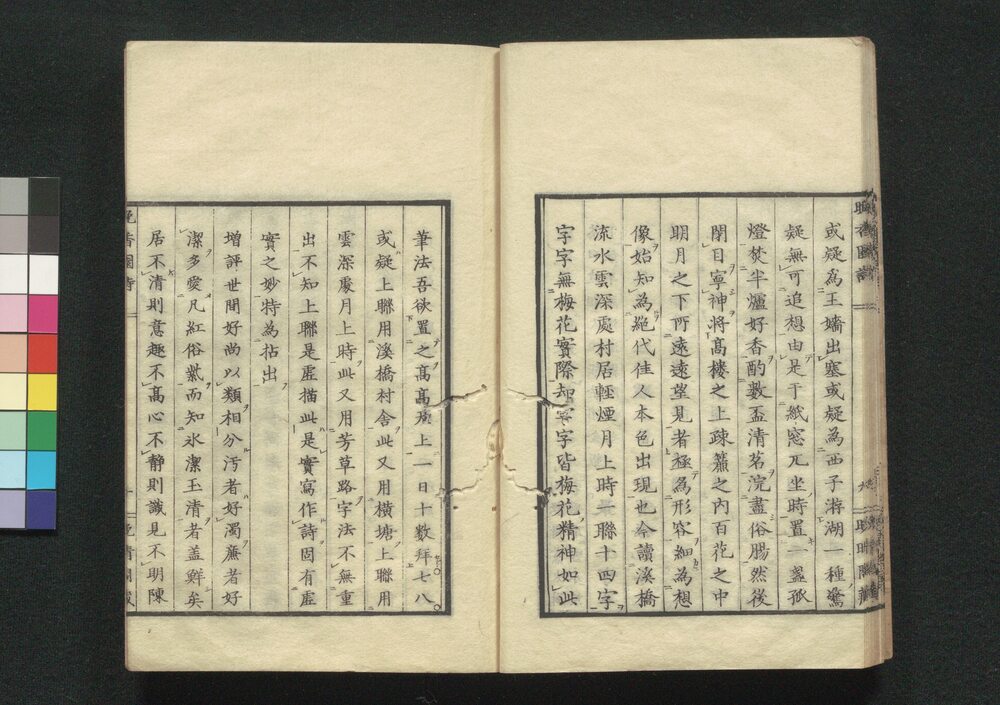 或疑爲王嬙出塞或疑為西子游湖一種驚
疑無可追想由是于紙窓兀坐時置一盞孤
燈焚半爐好香酌數盃清茗浣盡俗膓然後
閉目寧神将髙樓之上疎簾之内百花之中
明月之下所遠遠望見者極為形容細為想
像始知為絶代佳人本色出現也今讀溪橋
流水雲深處村居輕煙月上時一聯十四字
字字無梅花實際却字字皆梅花精神如此
筆法吾欲置之髙髙處上一日十數拜七八
或疑上聯用溪橋村舍此又用横塘上聯用
雲深處月上時此又用芳草路字法不無重
出不知上聯是虚描此是實寫作詩固有虚
實之妙特為拈出
增評世間好尚以類相分汚者好濁廉者好
潔多愛凡紅俗紫而知氷潔玉清者盖鮮矣
居不清則意趣不髙心不静則識見不明陳